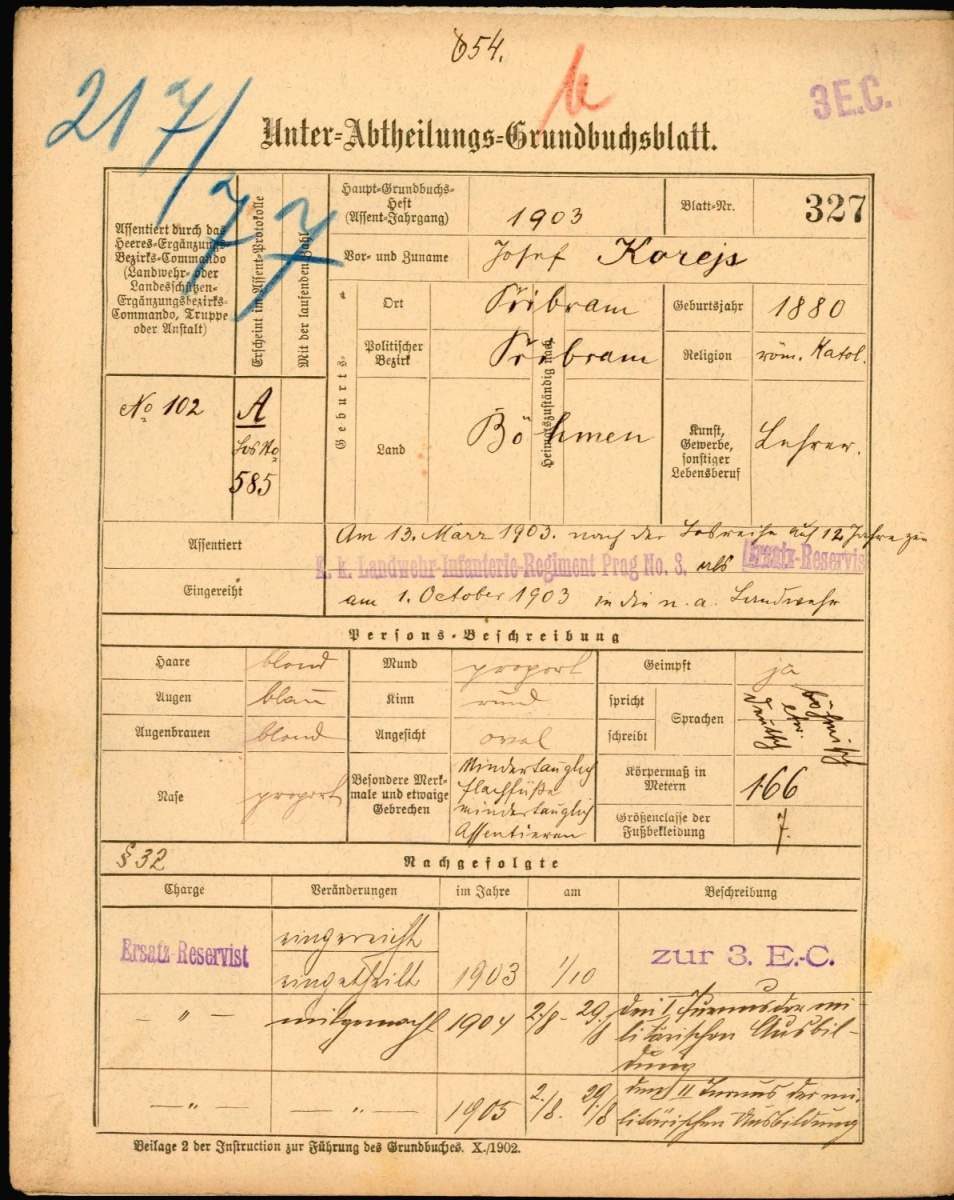 654.
217/
77
3 E.C.
Unter-Abtheilungs-Grundbuchsblatt.
Assentiert durch das
Heeres-Ergänzungs-
Bezirks-Commando
(Landwehr- oder
Landesschützen-
Ergänzungsbezirks-
Commando, Truppe
oder Anstalt)
Erscheint im Assent-Protokolle
Mit der laufenden Zahl
Haupt-Grundbuchs-
Heft
(Assent-Jahrgang)
1903
Blatt-Nr.
327
Vor- und Zuname
Josef Korejs
Geburts-
Ort
Přibram
Geburtsjahr
1880
Politischer
Bezirk
Přibram
Religion
röm. Katol.
Land
Böhmen
Heimatszuständig nach
Kunst,
Gewerbe,
sonstiger
Lebensberuf
Lehrer.
No 102
A
Los No
585
Assentiert
Am 13. März 1903. nach der Losreihe auf 12 Jahre zum
k. k. Landwehr-Infanterie-Regiment Prag No. 8. als Ersatz-Reservist
Eingereiht
am 1. October 1903 in die n. a. Landwehr
Persons-Beschreibung
Haare
blond
Mund
proport
Geimpft
ja
Augen
blau
Kinn
rund
spricht
schreibt
Sprachen
böhmisch
etw.
deutsch
Augenbrauen
blond
Angesicht
oval
Nase
proport
Besondere Merk-
male und etwaige
Gebrechen
Mindertauglich
Flachfüße
mindertauglich
Assentieren
Körpermaß in
Metern
1·66
Größenclasse der
Fußbekleidung
7.
§ 32
Nachgefolgte
Charge
Veränderungen
im Jahre
am
Beschreibung
Ersatz-Reservist
eingereiht
eingetheilt
1903
1/10
zur 3. E.-C.
— " —
mitgemacht
1904
2./8 - 29./8
den I Turnus der mi-
litärischen Ausbil-
dung
— " —
— " —
1905
2./8. 29./8
den II Turnus der mi-
litärischen Ausbildung
Beilage 2 der Instruction zur Führung des Grundbuches. X./1902.